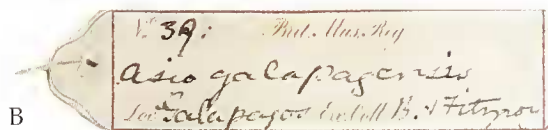 No. 39: Brit. Mus. Reg
Asio galapagensis
Loc. Galapagos Ex Coll B. & Fitzroy
B